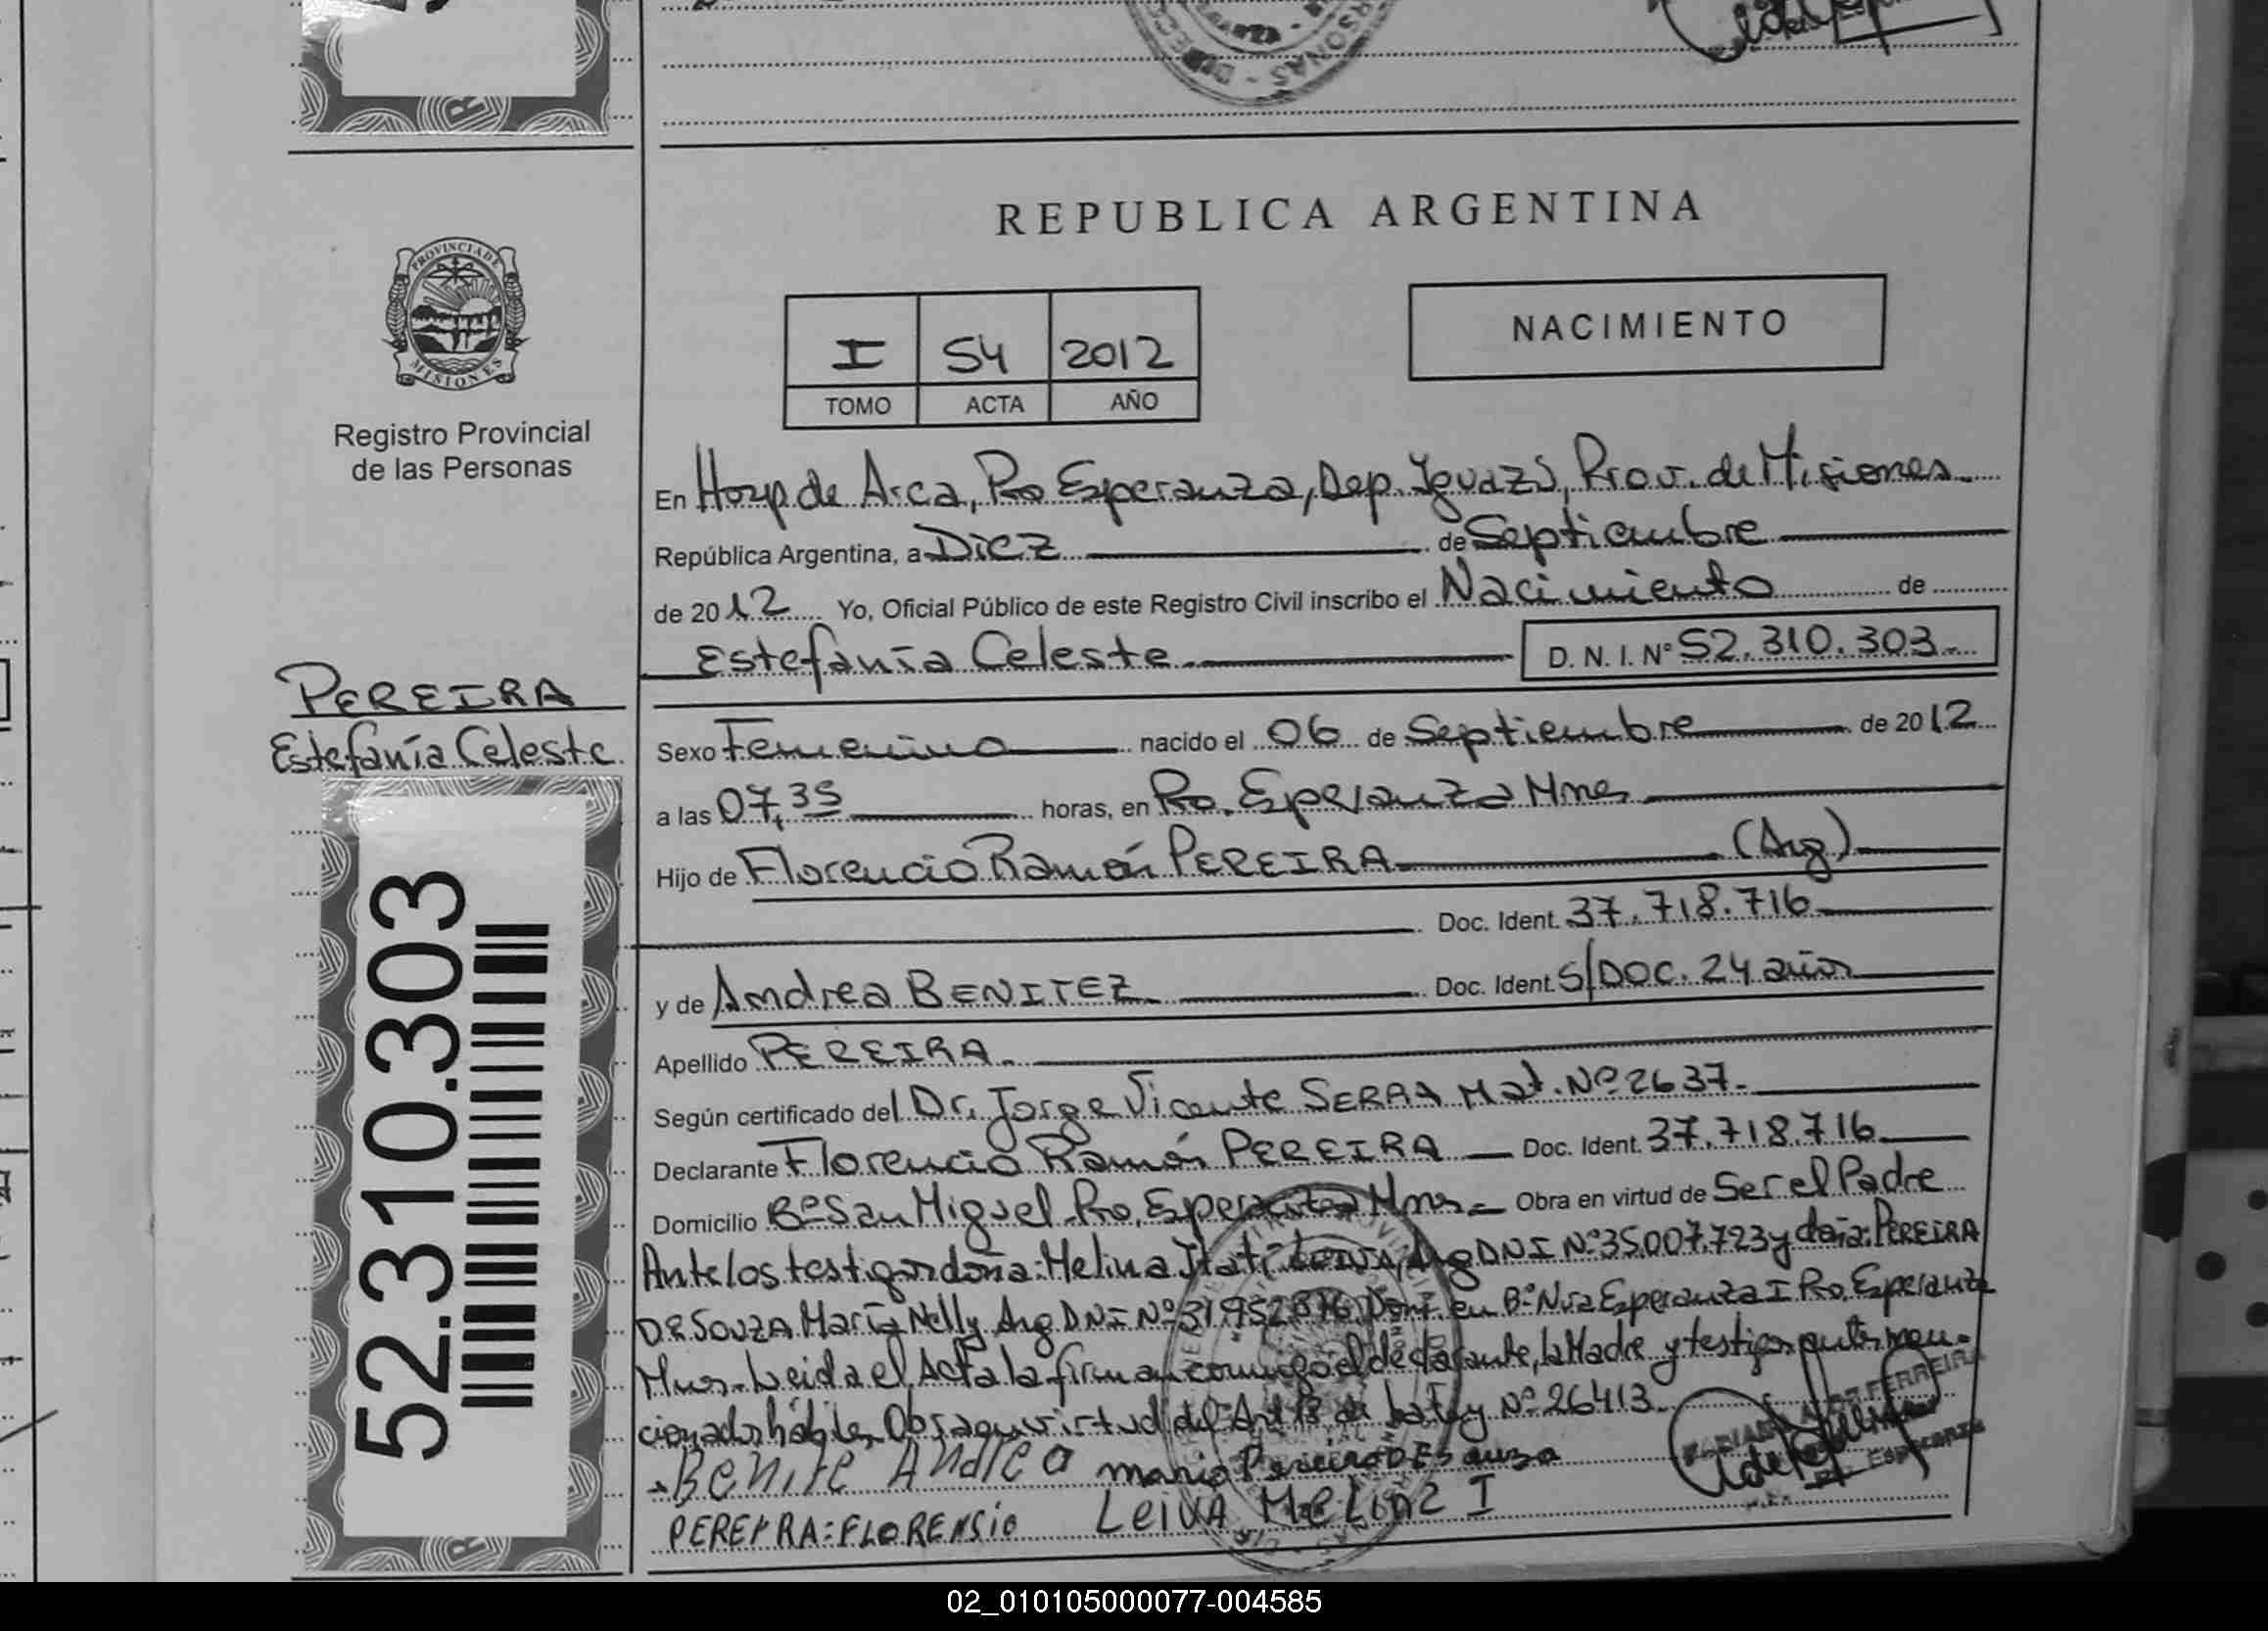 REPUBLICA ARGENTINA
PROVINCIA DE
MISIONES
Registro Provincial
de las Personas
I 54 2012
TOMO ACTA AÑO
NACIMIENTO
En Hosp de Area, Pto Esperanza, Dep. Iguazú, Prov. de Misiones
República Argentina, a Diez de Septiembre
de 2012 Yo, Oficial Público de este Registro Civil inscribo el Nacimiento de
Estefanía Celeste D. N. I. Nº 52.310.303
PEREIRA
Estefanía Celeste
Sexo Femenino nacido el 06 de Septiembre de 2012
a las 07,35 horas, en Pto. Esperanza Mnes
Hijo de Florencio Ramón PEREIRA (Arg)
Doc. Ident. 37.718.716
y de Andrea BENITEZ Doc. Ident. S/DOC. 24 años
Apellido PEREIRA
Según certificado del Dr. Jorge Vicente SERRA Mat. Nº 2637.
Declarante Florencio Ramón PEREIRA Doc. Ident. 37.718.716
Domicilio Bº San Miguel Pto. Esperanza Mnes Obra en virtud de Ser el Padre
Ante los testigos doña: Melina Itatí Arg DNI Nº 35.007.723 y doña: PEREIRA
DE SOUZA María Nelly Arg DNI Nº Dom. en Bº Nva Esperanza I Pto. Esperanza
Mnes. Leida el Acta la firman conmigo el declarante, la Madre y testigos antes men-
cionados hábiles Obra en virtud del Art de La Ley Nº 26413.
BENITE ANdREA maria Pereira DE souza
PEREIRA: FLORENSIO LeiVA MeLina I
52.310.303
02_010105000077-004585